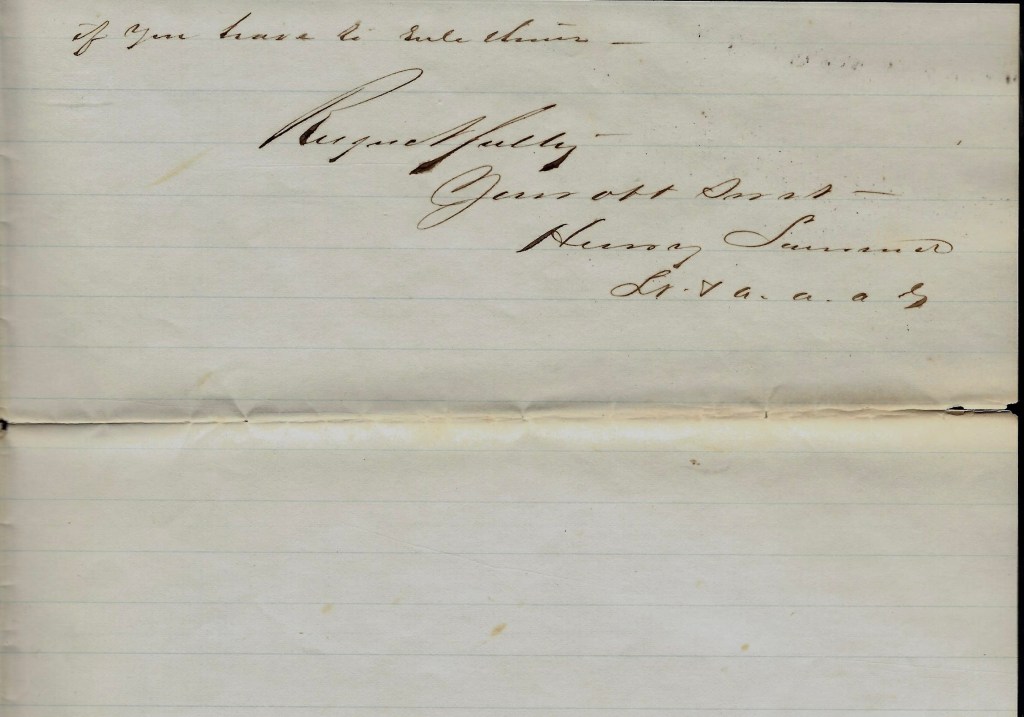 if you have to rule them —
Respectfully
Your obt Servt —
Henry Sumner
Lt. & a. a. a. G